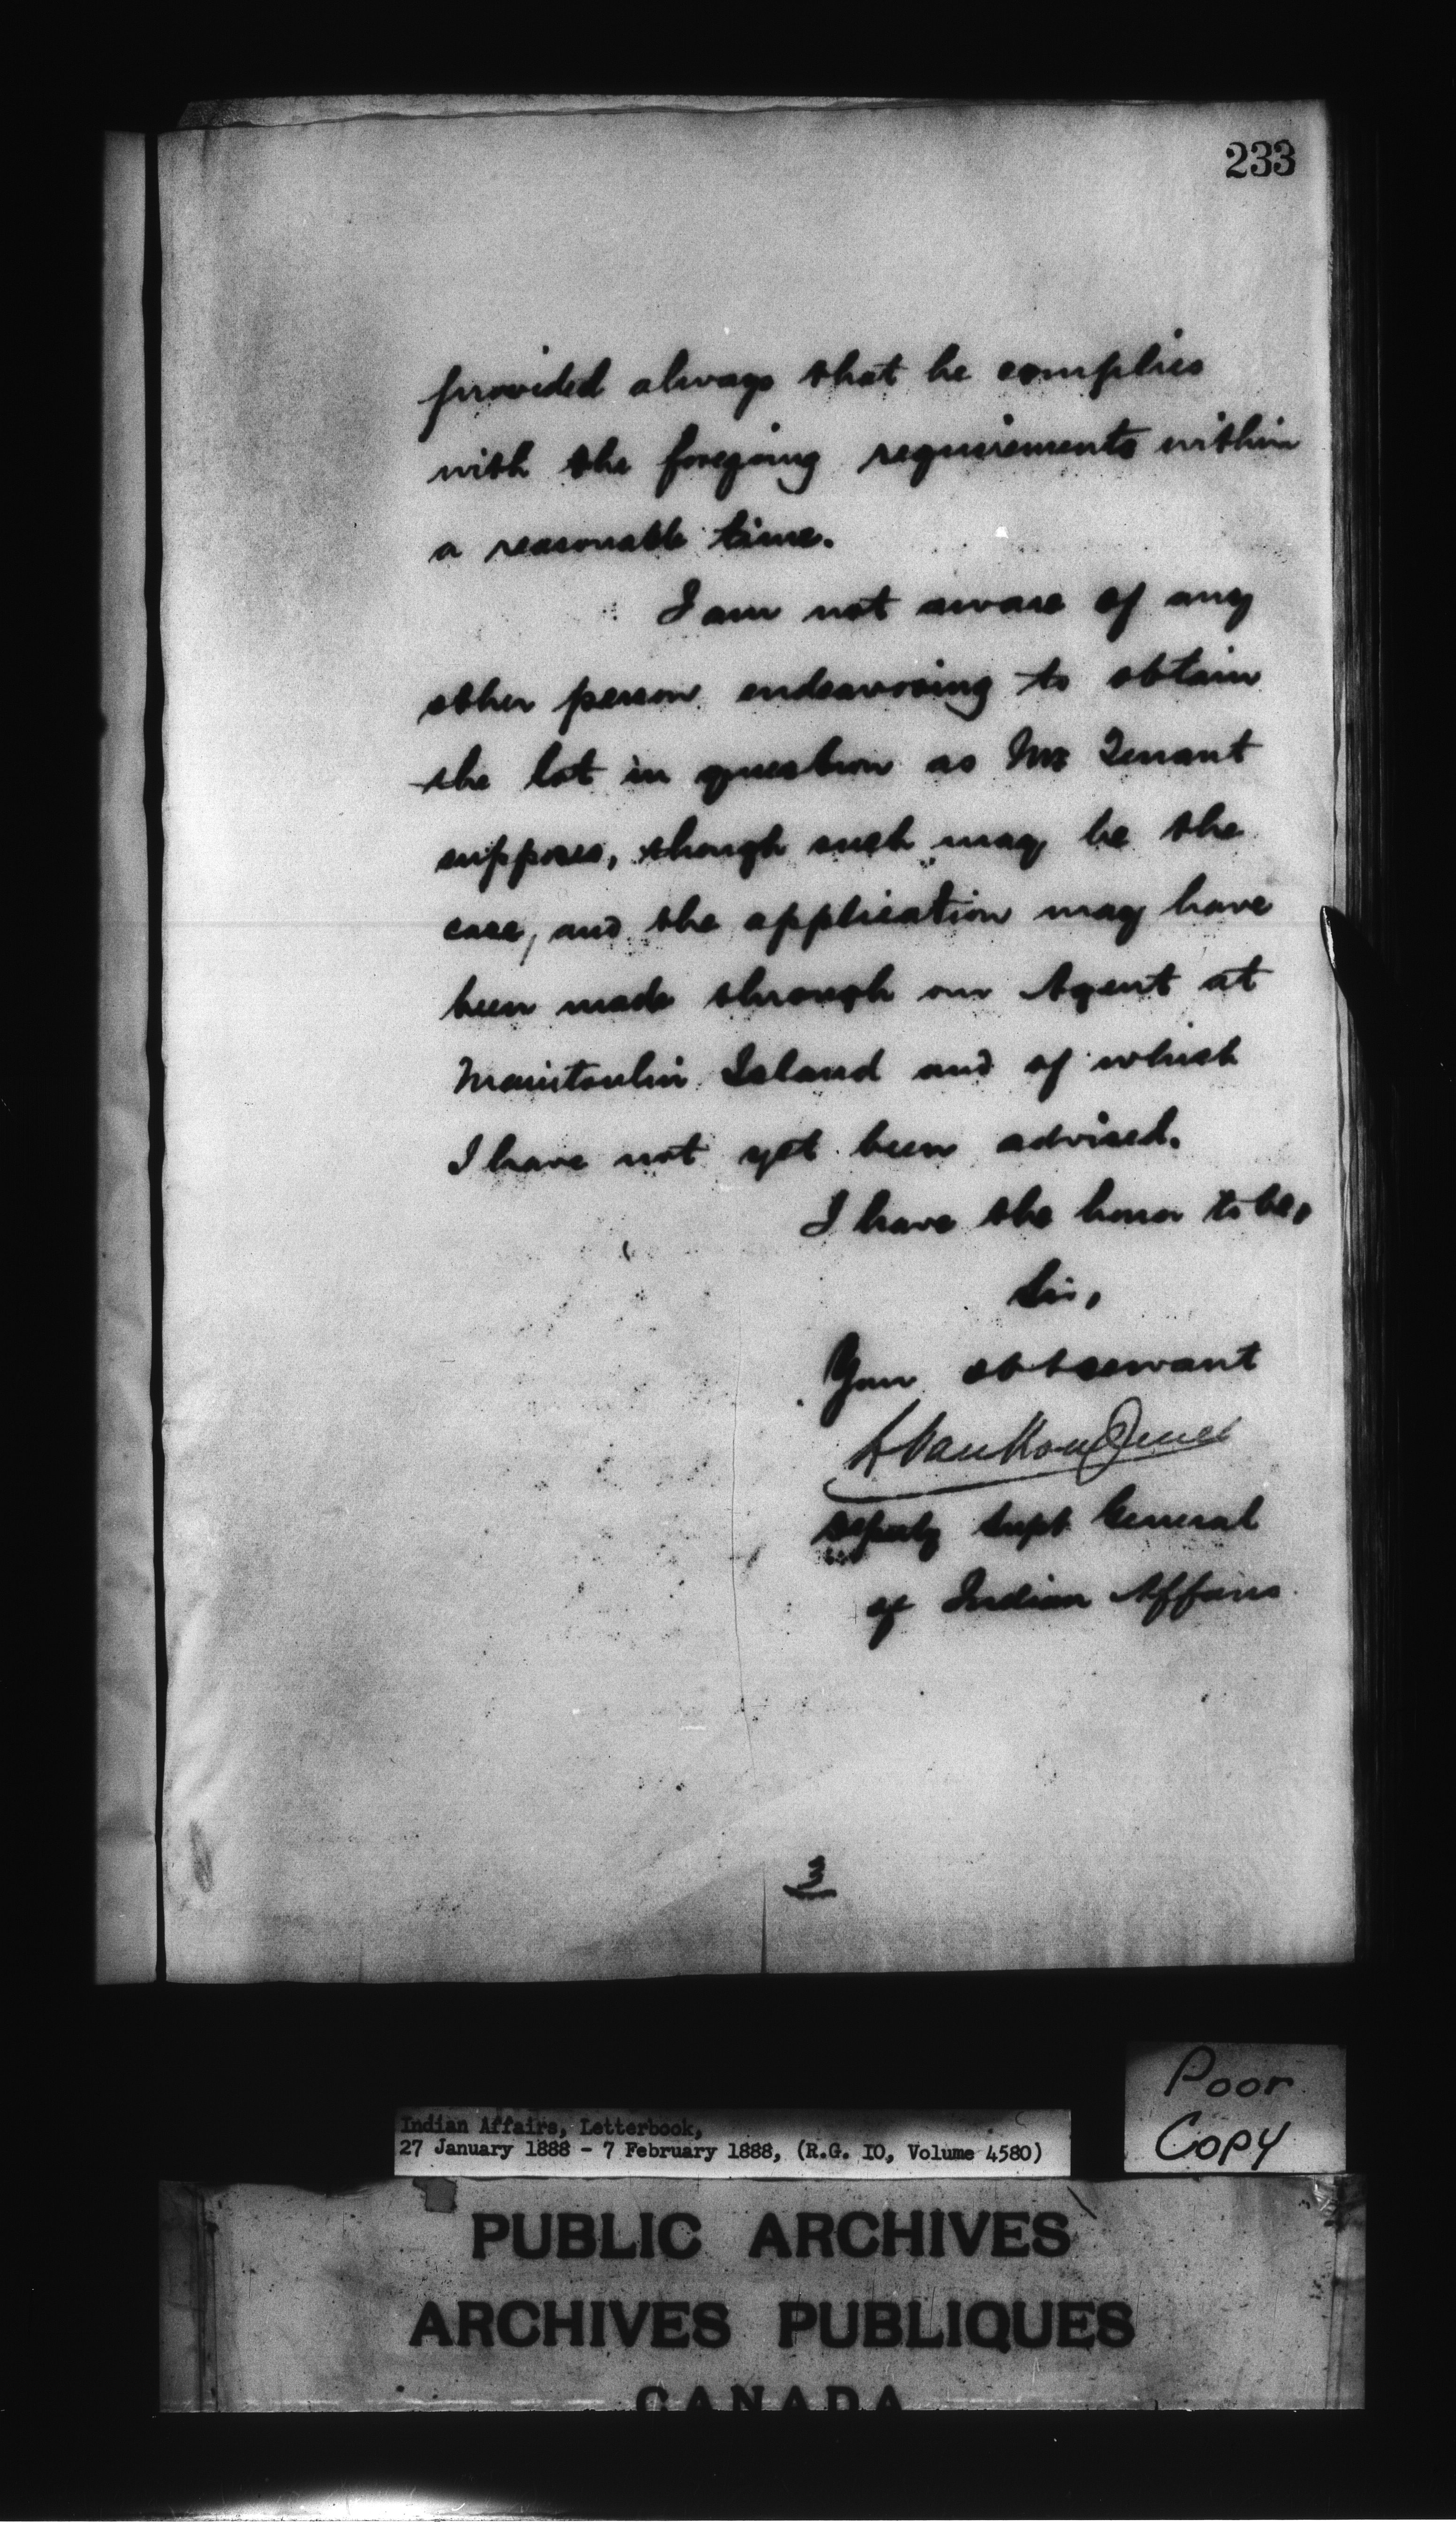 233
provided always that he complies
with the foregoing requirements within
a reasonable time.
I am not aware of any
other person endeavoring to obtain
the lot in question as Mr Tenant
supposes, though such may be the
case, and the application may have
been made through our Agent at
Manitoulin Island and of which
I have not yet been advised.
I have the honor to be,
Sir,
Your obt servant
L VanKoughnet
Deputy Supt General
of Indian Affairs
3
Poor
Copy
Indian Affairs, Letterbook,
27 January 1888 - 7 February 1888, (R.G. IO, Volume 4580)
PUBLIC ARCHIVES
ARCHIVES PUBLIQUES
CANADA